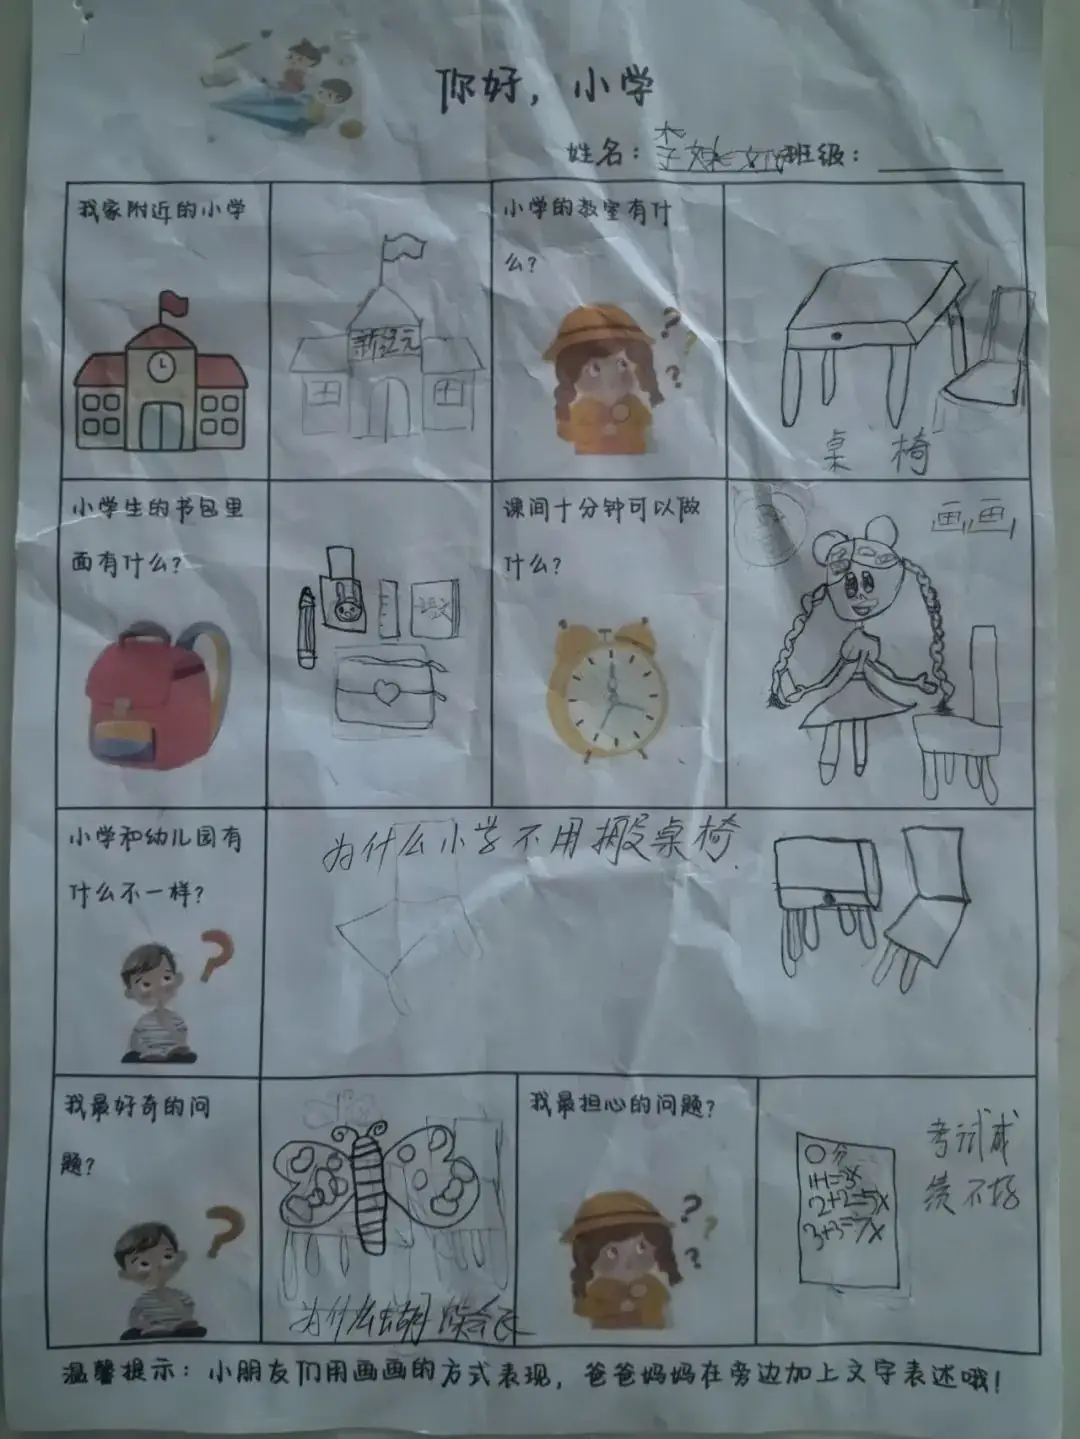 你好，小学
姓名：李 班级：
我家附近的小学
新纪元
小学的教室有什
么？
桌 椅
小学生的书包里
面有什么？
语文
课间十分钟可以做
什么？
画画
小学和幼儿园有
什么不一样？
为什么小学不用搬桌椅
我最好奇的问
题？
为什么蝴蝶会飞
我最担心的问题？
0分
1+1=3x
2+2=5x
3+3=7x
考试成
绩不好
温馨提示：小朋友们用画画的方式表现，爸爸妈妈在旁边加上文字表述哦！